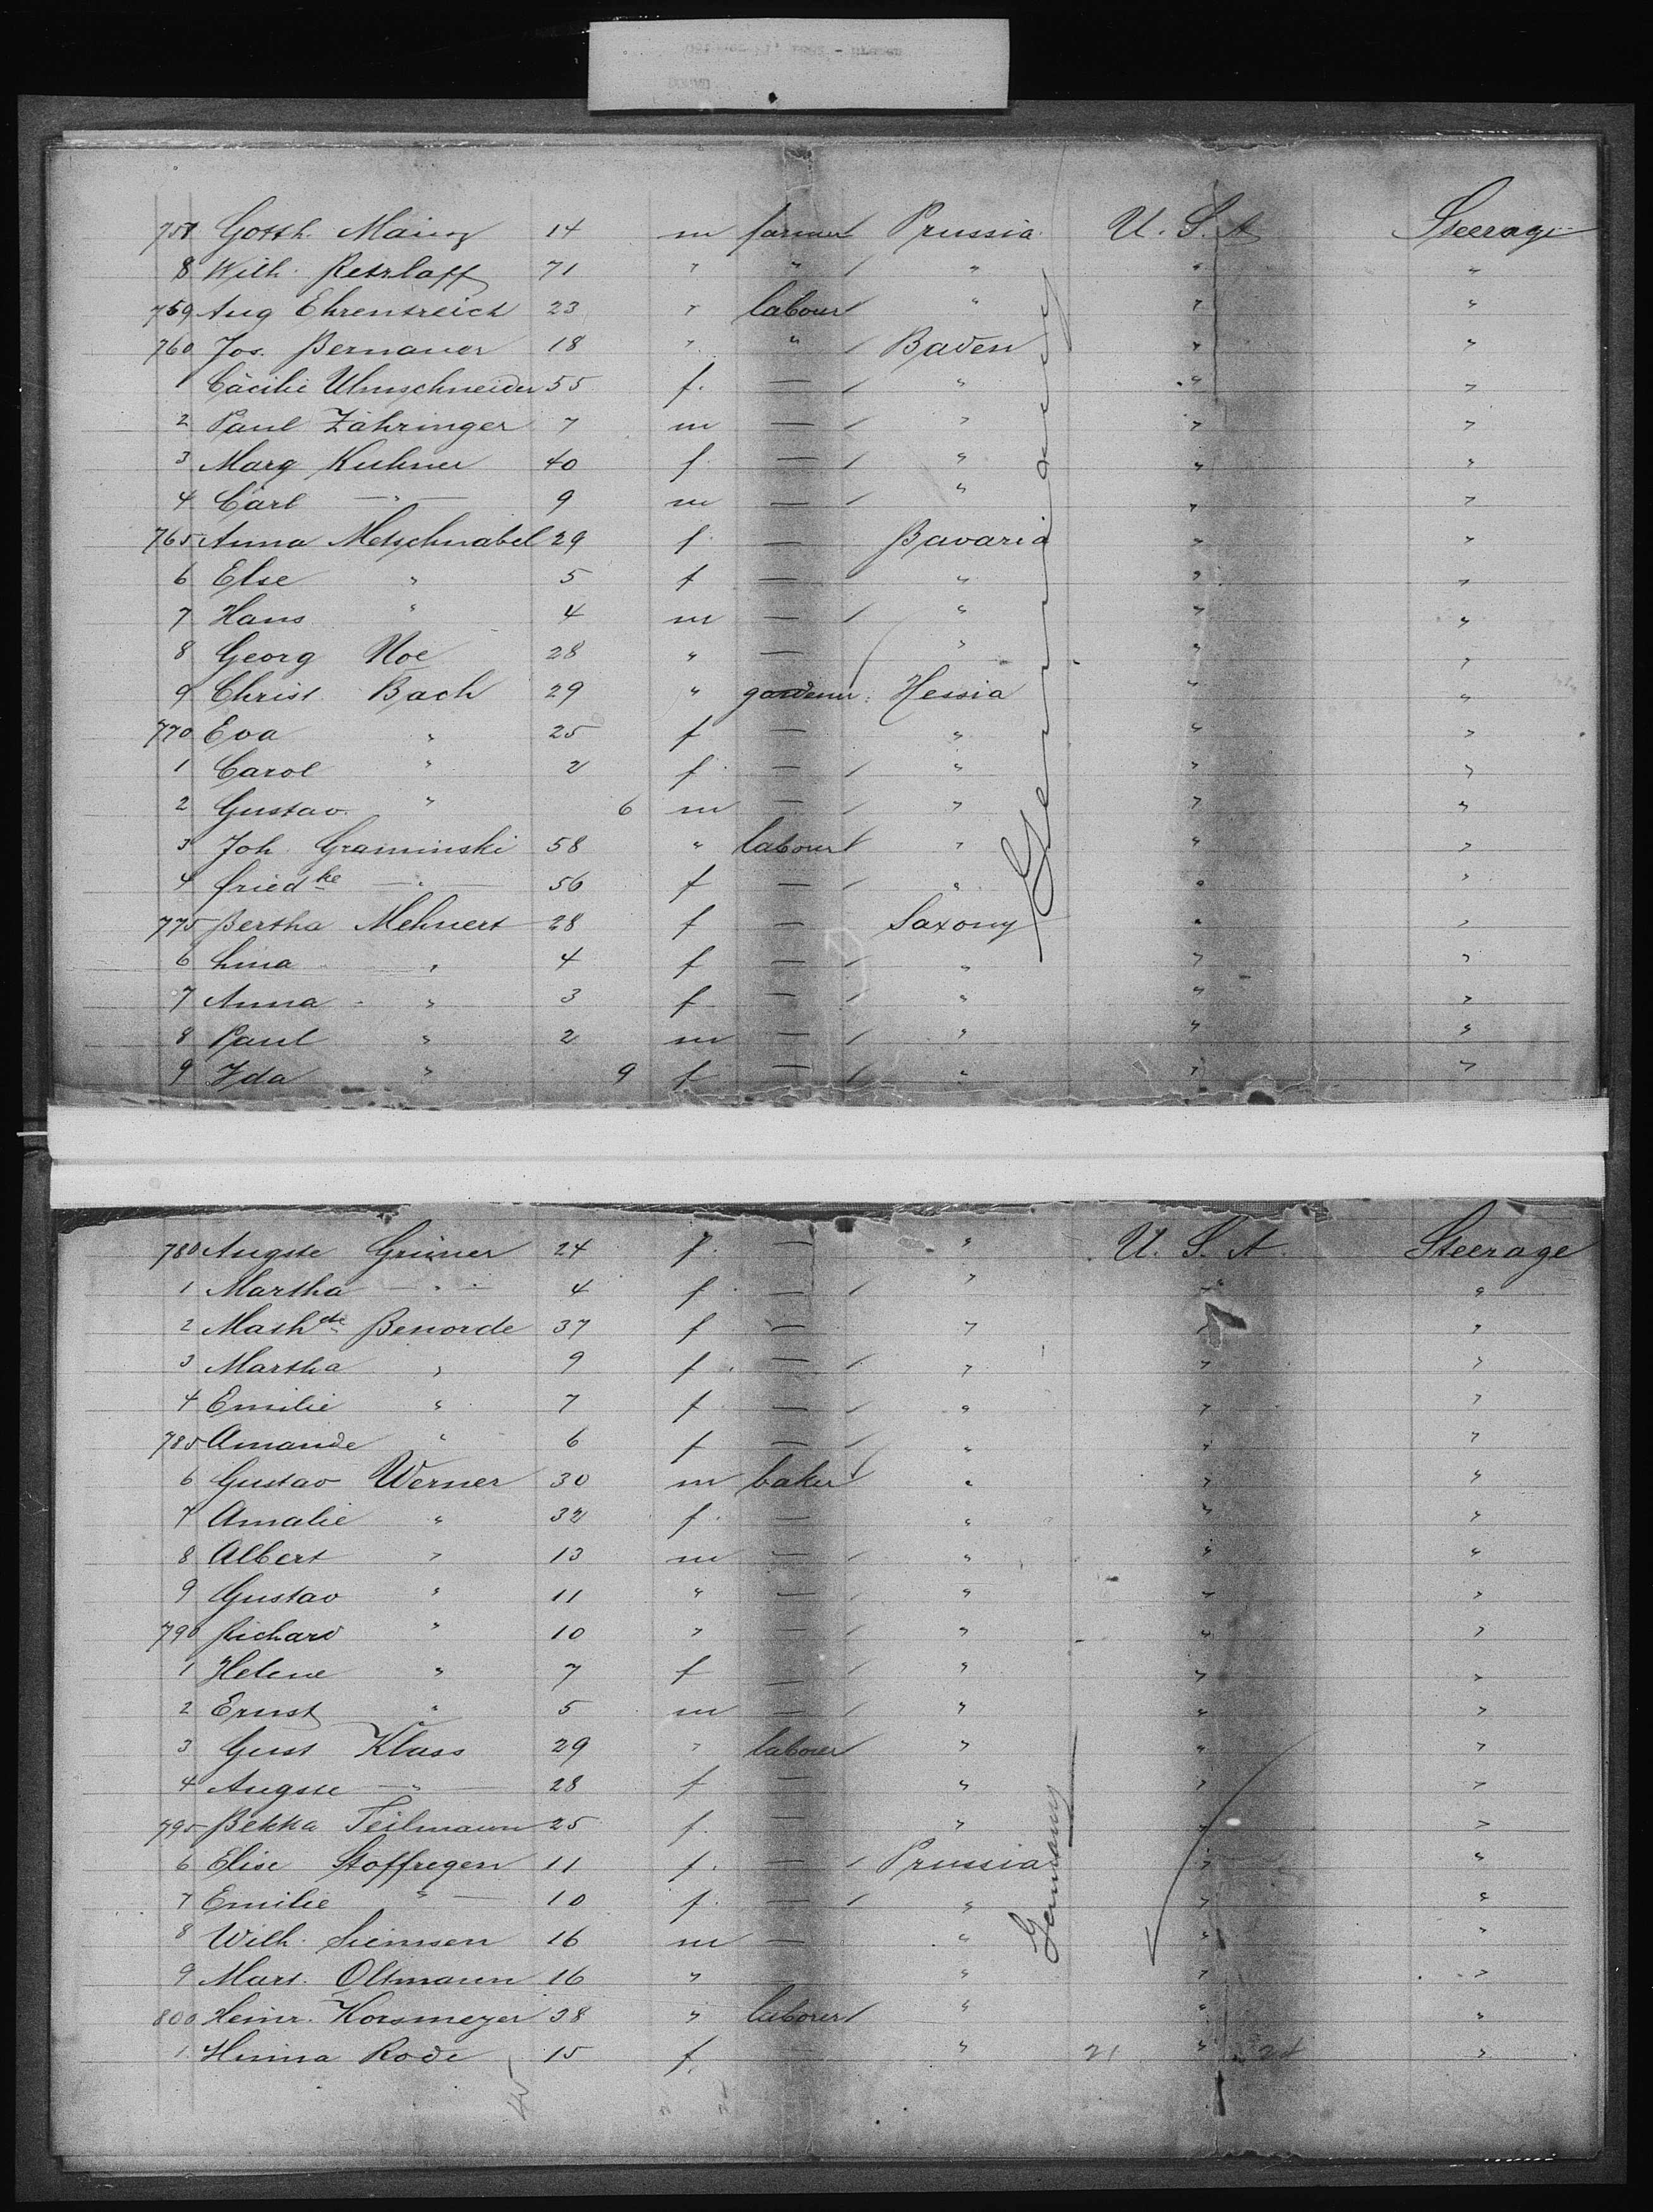 757 Gotth. Mainz 14 m farmer Prussia U. S. A Steerage
8 Wilh. Retzlaff 71 " " " " "
759 Aug Ehrentreich 23 " labour " " "
760 Jos. Bernauer 18 " " Baden " "
1 Cäcilie Ulmschneider 55 f. — " " "
2 Paul Zähringer 7 m — " " "
3 Marg Kuhner 40 f. — " " "
4 Carl —"— 9 m — " " "
765 Anna Metschnabel 29 f. — Bavaria " "
6 Else " 5 f — " " "
7 Hans " 4 m — " " "
8 Georg Noe 28 " — " " "
9 Christ. Bach 29 " gardener Hessia " "
770 Eva " 25 f — " " "
1 Carol " 2 f. — " " "
2 Gustav " 6 m — " " "
3 Joh. Graminski 58 " labour " " "
4 Friedke —"— 56 f — " " "
775 Bertha Mehnert 28 f — Saxony " "
6 Lina " 4 f — " " "
7 Anna " 3 f — " " "
8 Paul " 2 m — " " "
9 Ida " 9 f — " " "
Germany
780 Auguste Grüner 24 f. — " U. S. A. Steerage
1 Martha —"— 4 f. — " " "
2 Mathde Benorde 37 f — " " "
3 Martha " 9 f. — " " "
4 Emilie " 7 f — " " "
785 Amande " 6 f — " " "
6 Gustav Werner 30 m baker " " "
7 Amalie " 32 f. — " " "
8 Albert " 13 m — " " "
9 Gustav " 11 " — " " "
790 Richard " 10 " — " " "
1 Helene " 7 f — " " "
2 Ernst " 5 m — " " "
3 Gust Klass 29 " labour " " "
4 Auguste —"— 28 f — " " "
795 Bekka Teilmann 25 f. — " " "
6 Elise Stoffregen 11 f. — Prussia " "
7 Emilie "— 10 f. — " " "
8 Wilh. Siemsen 16 m — " " "
9 Mart. Oltmann 16 " " " "
800 Heinr. Horsmeyer 38 " laborer " " "
1. Hinna Rode 15 f. — " 21 " "
Germany